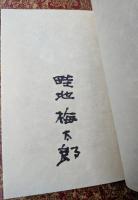 畦地
梅太郎